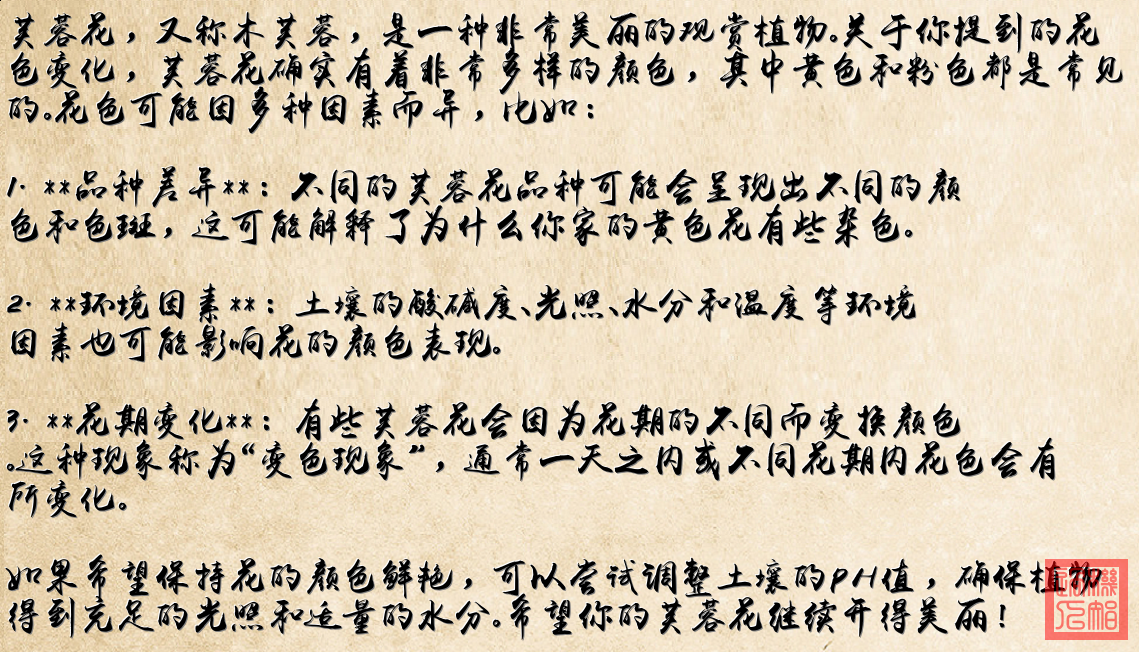 芙蓉花，又称木芙蓉，是一种非常美丽的观赏植物。关于你提到的花
色变化，芙蓉花确实有着非常多样的颜色，其中黄色和粉色都是常见
的。花色可能因多种因素而异，比如：
1. **品种差异**：不同的芙蓉花品种可能会呈现出不同的颜
色和色斑，这可能解释了为什么你家的黄色花有些杂色。
2. **环境因素**：土壤的酸碱度、光照、水分和温度等环境
因素也可能影响花的颜色表现。
3. **花期变化**：有些芙蓉花会因为花期的不同而变换颜色
。这种现象称为“变色现象”，通常一天之内或不同花期内花色会有
所变化。
如果希望保持花的颜色鲜艳，可以尝试调整土壤的PH值，确保植物
得到充足的光照和适量的水分。希望你的芙蓉花继续开得美丽！